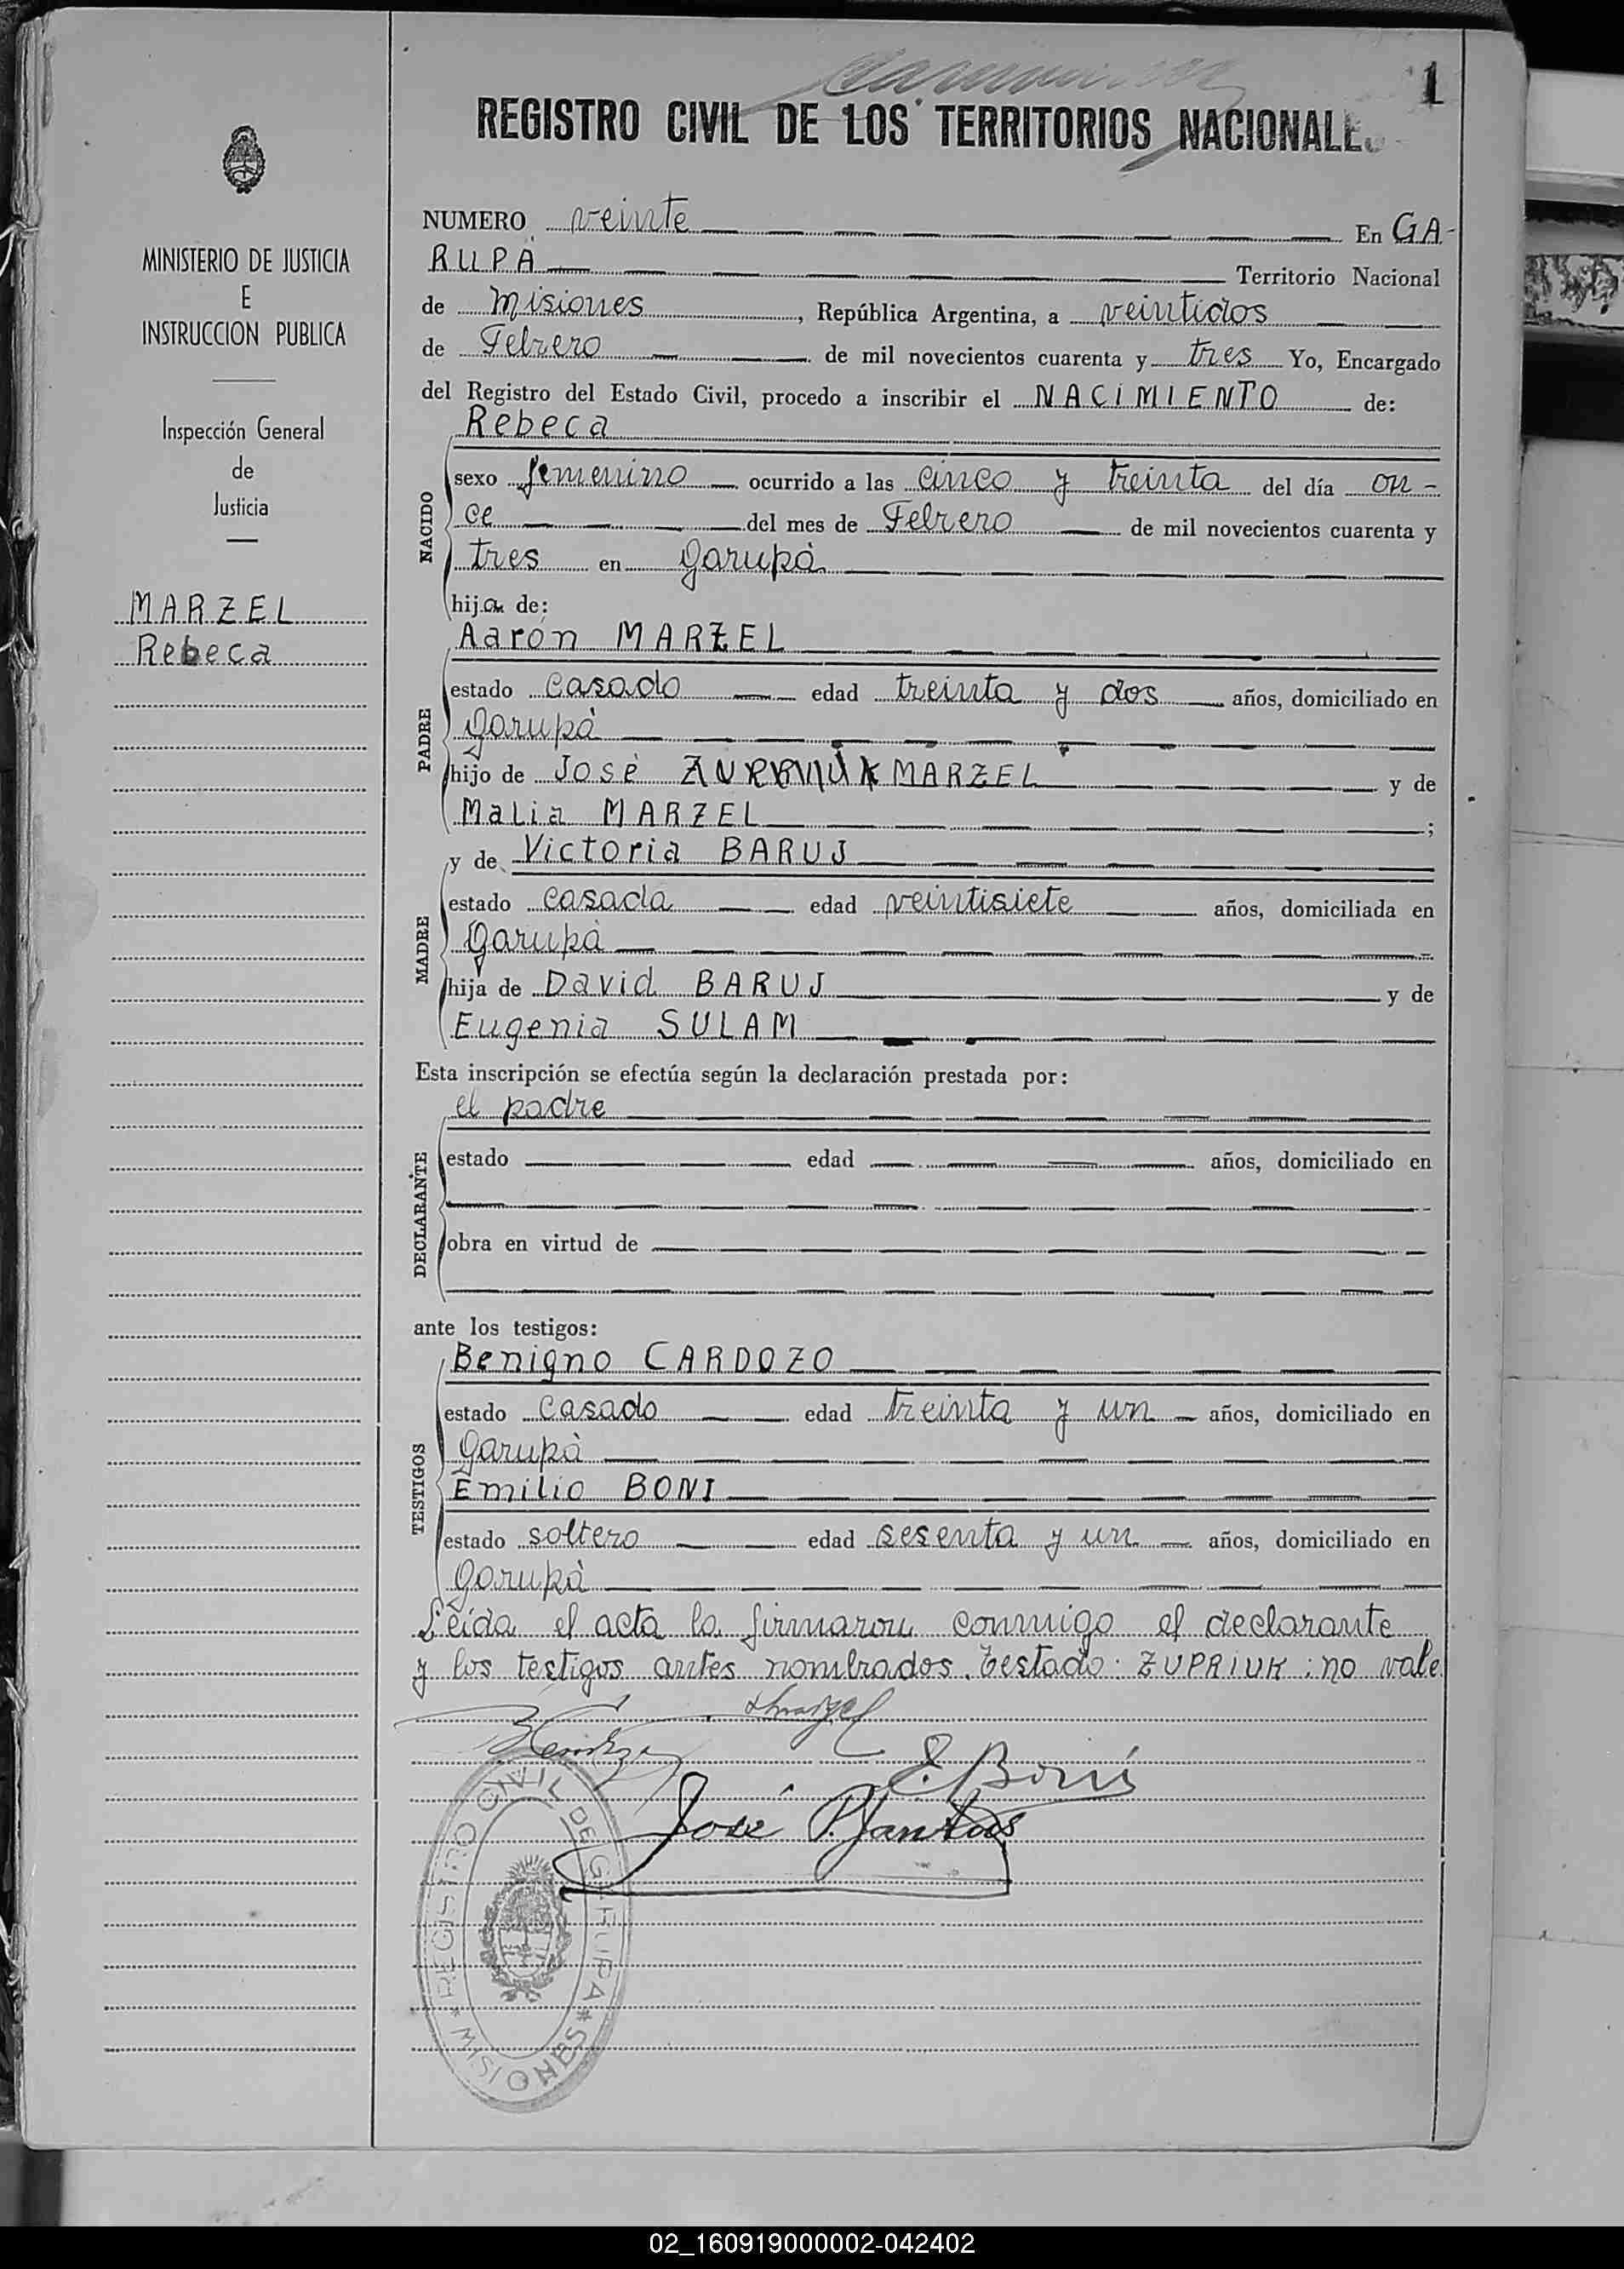 1
REGISTRO CIVIL DE LOS TERRITORIOS NACIONALE
MINISTERIO DE JUSTICIA
E
INSTRUCCION PUBLICA
Inspección General
de
Justicia
MARZEL
Rebeca
NUMERO veinte En GA-
RUPÁ Territorio Nacional
de Misiones, República Argentina, a veintidos
de Febrero de mil novecientos cuarenta y tres Yo, Encargado
del Registro del Estado Civil, procedo a inscribir el NACIMIENTO de:
NACIDO
Rebeca
sexo femenino ocurrido a las cinco y treinta del día on-
ce del mes de Febrero de mil novecientos cuarenta y
tres en Garupà
hija de:
PADRE
Aarón MARZEL
estado casado edad treinta y dos años, domiciliado en
Garupà
hijo de José MARZEL y de
Malia MARZEL;
MADRE
y de Victoria BARUJ
estado casada edad veintisiete años, domiciliada en
Garupà
hija de David BARUJ y de
Eugenia SULAM
Esta inscripción se efectúa según la declaración prestada por:
DECLARANTE
el padre
estado edad años, domiciliado en
obra en virtud de
ante los testigos:
TESTIGOS
Benigno CARDOZO
estado casado edad treinta y un años, domiciliado en
Garupà
Emilio BONI
estado soltero edad sesenta y un años, domiciliado en
Garupà
Leída el acta la firmaron conmigo el declarante
y los testigos antes nombrados. Testado: ZUPRIUK: no vale
E. Boni
José P. Santos
REGISTRO CIVIL DE GARUPA * MISIONES *
02_160919000002-042402